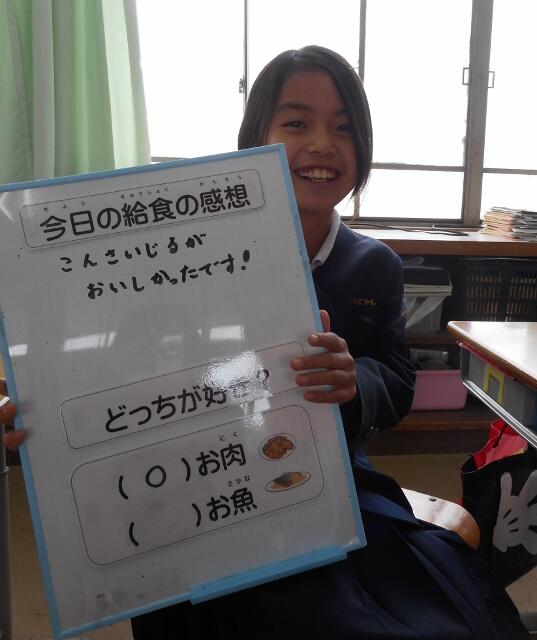 きょう きゅうしょく かんそう
今日の給食の感想
こんさいじるが
おいしかったです!
どっちが好き?
にく
(○)お肉
さかな
( )お魚